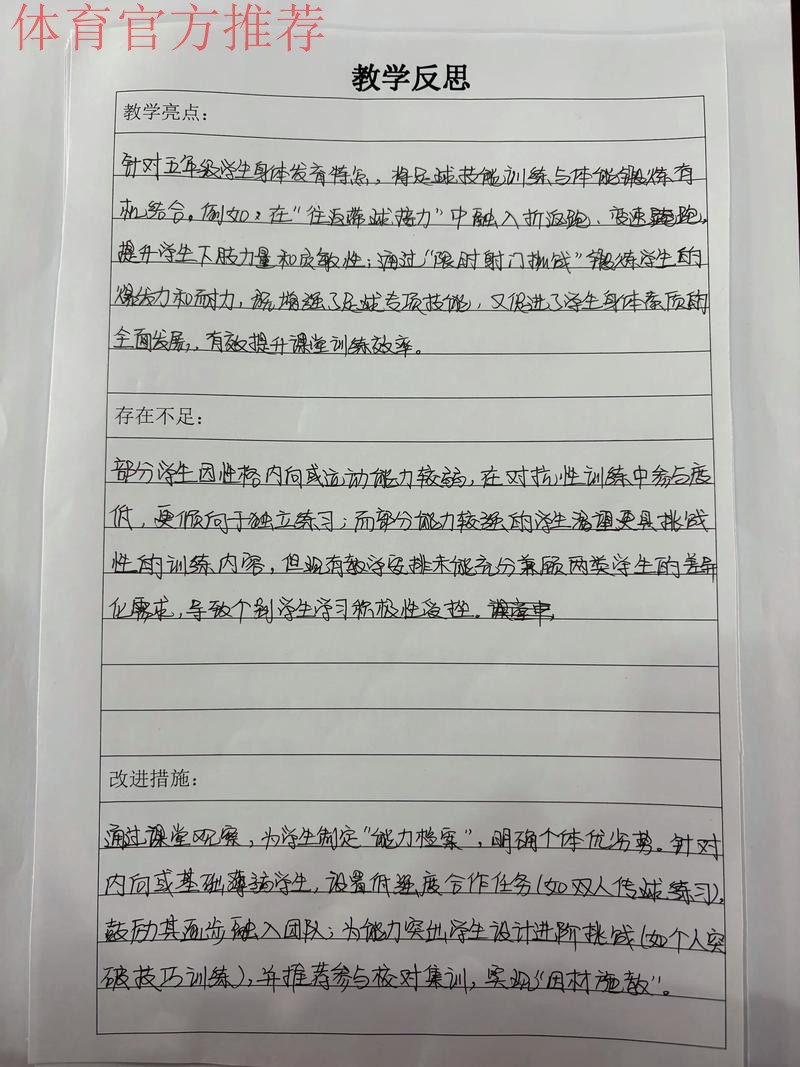 体育官方推荐
教学反思
教学亮点：
针对五年级学生身体发育特点，将足球技能训练与体能锻炼有
机结合。例如：在“往返带球接力”中融入折返跑、变速跑，
提升学生下肢力量和灵敏性；通过“限时射门挑战”锻炼学生的
爆发力和耐力，既增强了足球专项技能，又促进了学生身体素质的
全面发展，有效提升课堂训练效率。
存在不足：
部分学生因性格内向或运动能力较弱，在对抗性训练中参与度
低，更倾向于独立练习；而部分能力较强的学生渴望更具挑战
性的训练内容，但现有教学安排未能充分兼顾两类学生的差异
化需求，导致个别学生学习积极性受挫。
改进措施：
通过课堂观察，为学生制定“能力档案”，明确个体优劣势。针对
内向或基础薄弱学生，设置低强度合作任务（如双人传球练习），
鼓励其逐步融入团队；为能力突出学生设计进阶挑战（如个人突
破技巧训练），并推荐参与校对集训，实现“因材施教”。